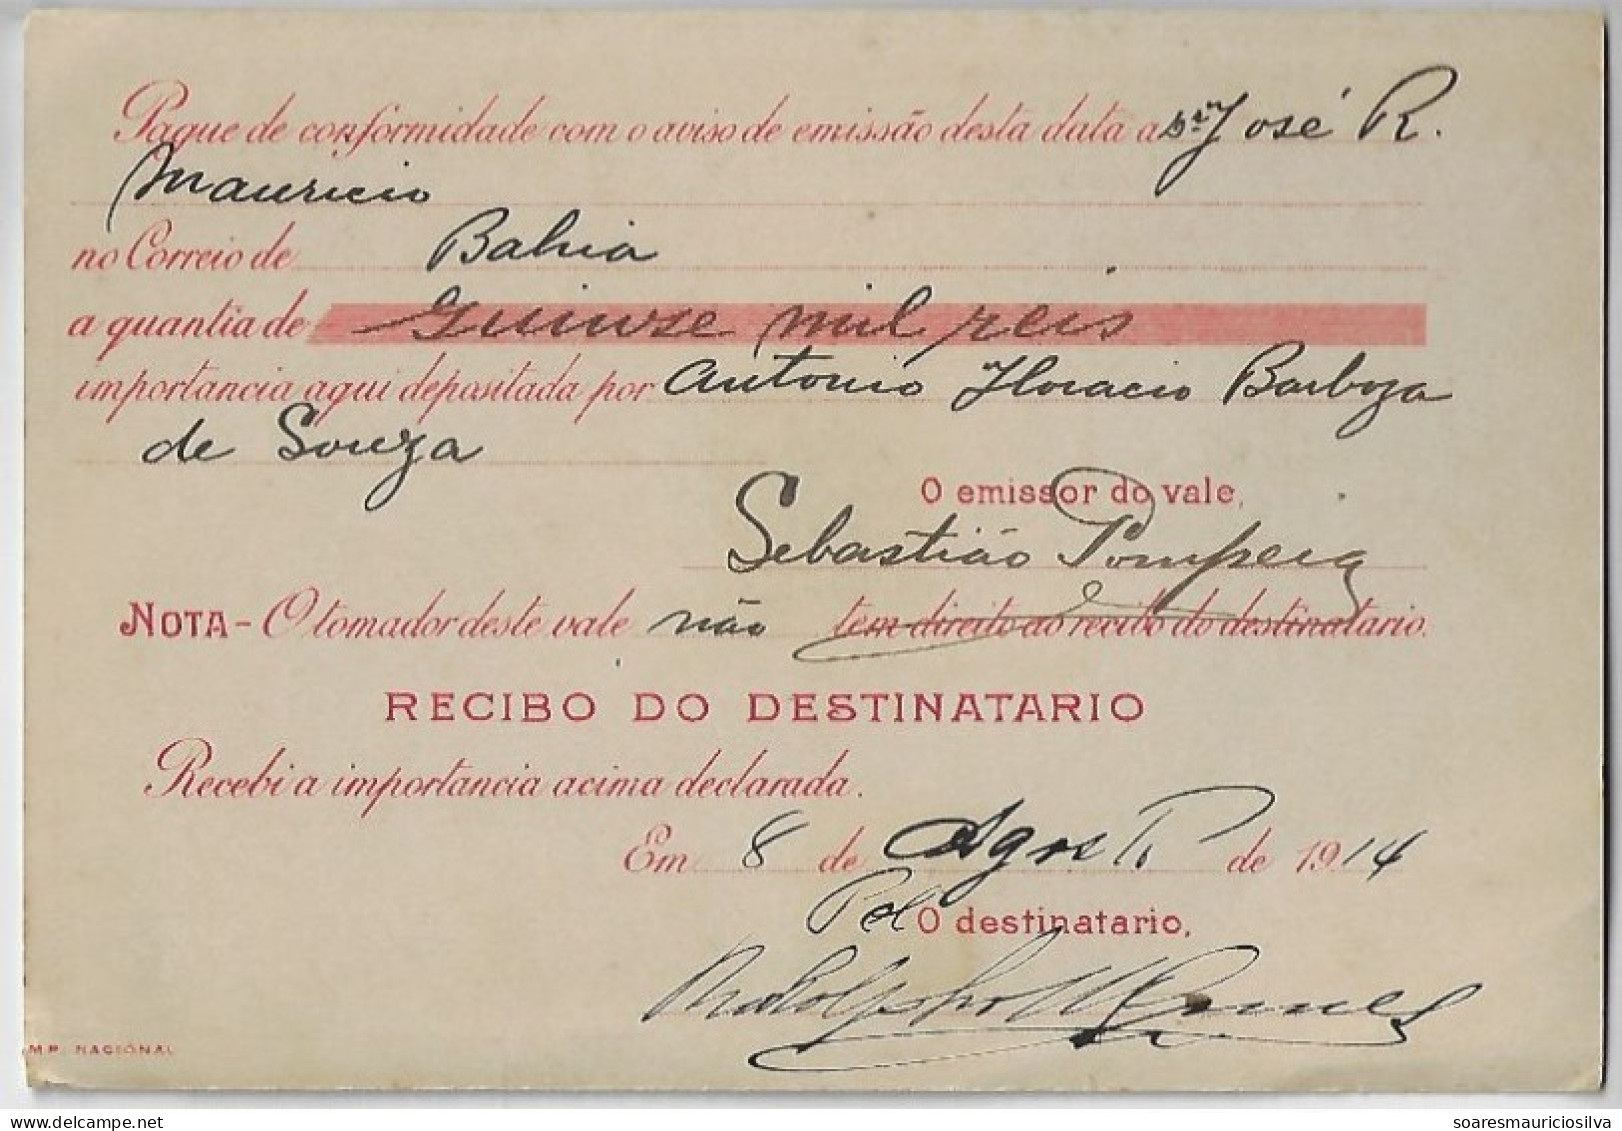 Pague de conformidade com o aviso de emissão desta data a Snr José R.
Mauricio
no Correio de Bahia
a quantia de Quinse mil reis
importancia aqui depositada por Antonio Horacio Barboza
de Souza
O emissor do vale,
Sebastião Pompeia
NOTA - O tomador deste vale não tem direito ao recibo do destinatario.
RECIBO DO DESTINATARIO
Recebi a importancia acima declarada.
Em 8 de Agosto de 1914
Pel O destinatario,
MP. NACIONAL
soaresmauriciosilva